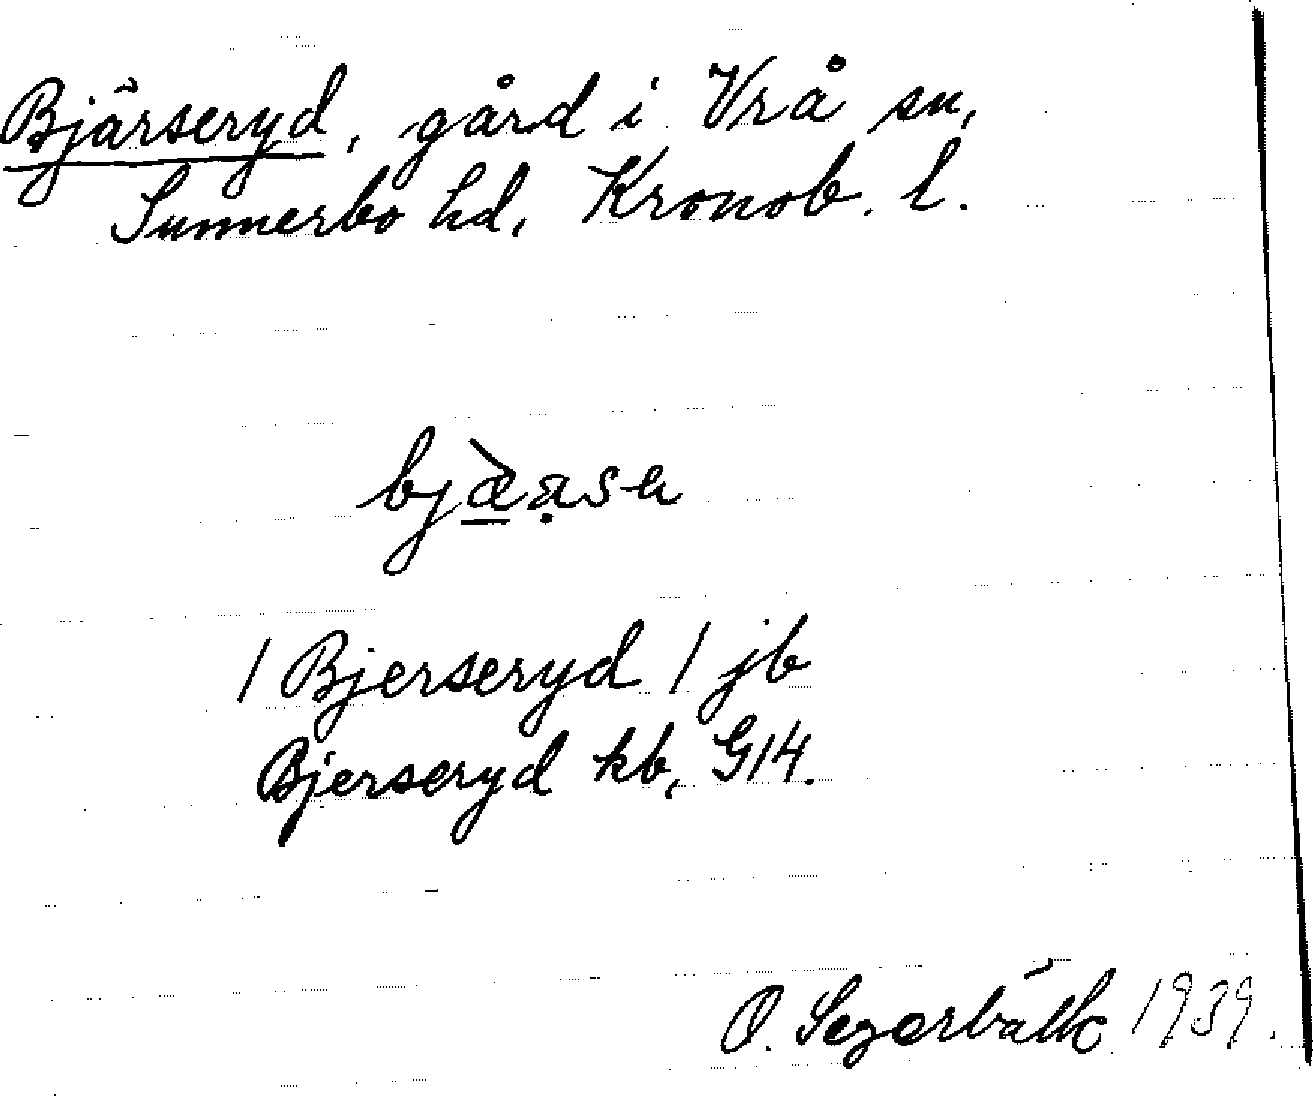 Bjärseryd, gård i Vrå sn,
Sunnerbo hd, Kronob. l.
bjæ̀ạsa
/ Bjerseryd / jb
Bjerseryd kb, G14.
O. Segerbäck 1939.